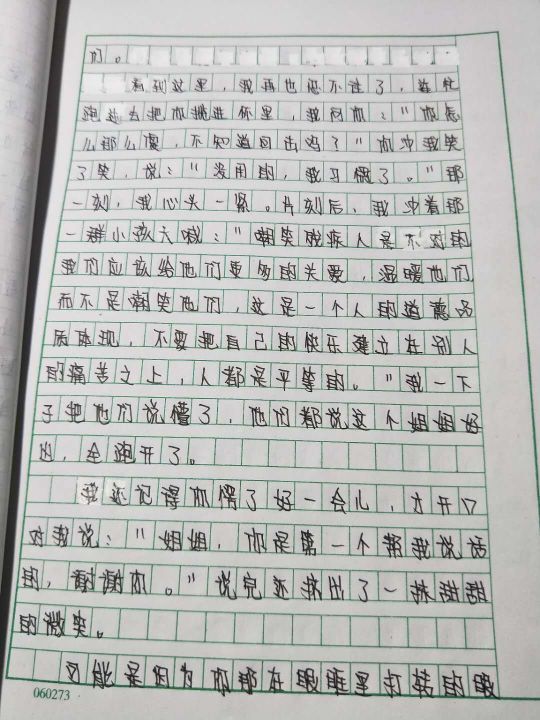 们。
看到这里，我再也忍不住了，连忙
跑过去把你揽进怀里，我问你："你怎
么那么傻，不知道回击吗？"你冲我笑
了笑，说："没用的，我习惯了。"那
一刻，我心头一紧。片刻后，我冲着那
一群小孩大喊："嘲笑残疾人是不对的
我们应该给他们更多的关爱，温暖他们
而不是嘲笑他们，这是一个人的道德品
质体现，不要把自己的快乐建立在别人
的痛苦之上，人都是平等的。"我一下
子把他们说懵了，他们都说这个姐姐好
凶，全跑开了。
我还记得你愣了好一会儿，才开口
对我说："姐姐，你是第一个帮我说话
的，谢谢你。"说完还挤出了一抹甜甜
的微笑。
可能是因为你那在眼眶里打转的眼
060273